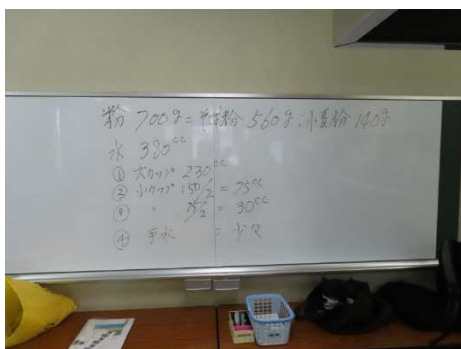 粉 700g = そば粉 560g : 小麦粉 140g
水 330cc
① 大カップ 230cc
② 小カップ 150/2 = 75cc
③ 〃 /2 = 30cc
④ 手水 = 少々